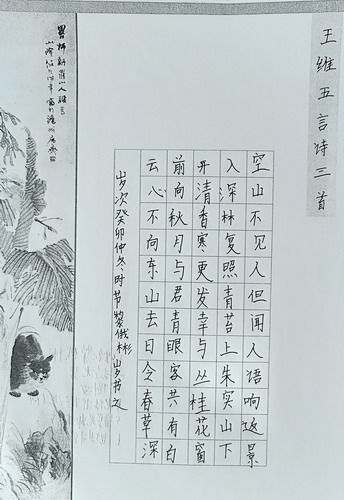 王维五言诗三首
空山不见人但闻人语响返景
入深林复照青苔上朱实山下
开清香寒更发幸与丛桂花窗
前向秋月与君青眼客共有白
云心不向东山去日令春草深
岁次癸卯仲冬时节黎俄彬